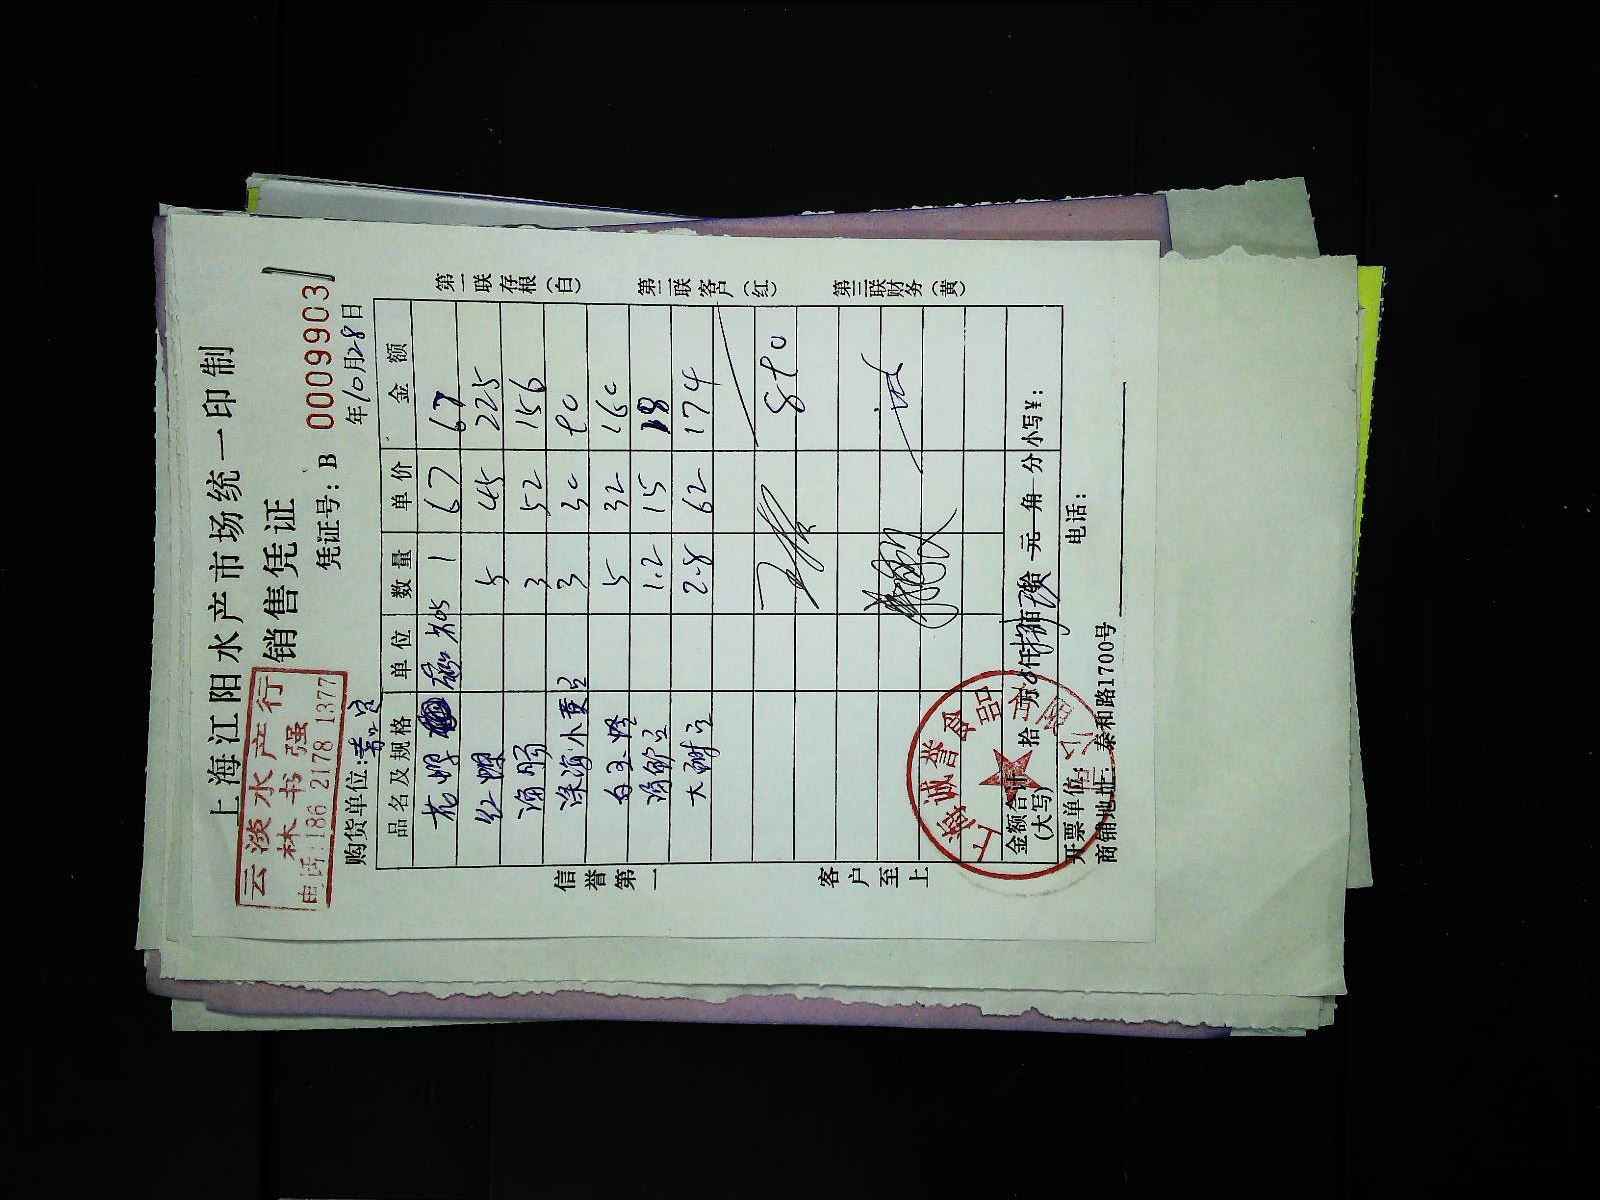 上海江阳水产市场统一印制
销售凭证
云淡水产行
林书强
电话:186 2178 1377
凭证号: B 0009903
购货单位:
年10月28日
品名及规格 单位 数量 单价 金额
花 1 67 67
红 5 45 225
3 52 156
深海小黄 3 30 90
白 5 32 160
1.2 15 18
大 2.8 62 174
890
金额合计(大写) 拾 万 仟 捌 佰 玖 拾 元 角 分 小写¥:
开票单位: 电话:
商铺地址: 泰和路1700号
第一联存根(白)
第二联客户(红)
第三联财务(黄)
信誉第一
客户至上
上海诚誉食品